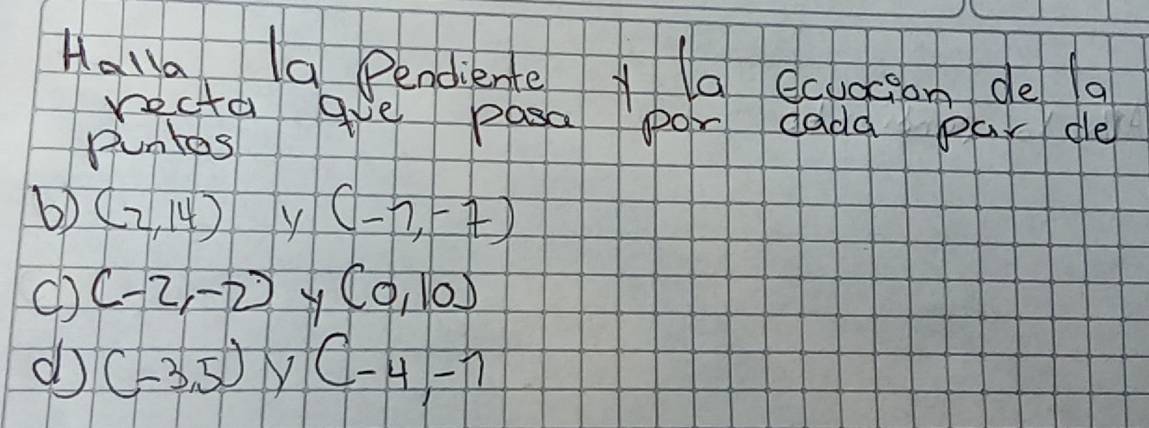 Halla la Pendiente y la ecuacion de la
recta que pasa por cada par de
puntos
b) (2,14) y (-1,-7)
c) (-2,-2) y (0,10)
d) (-3,5) y (-4,-1